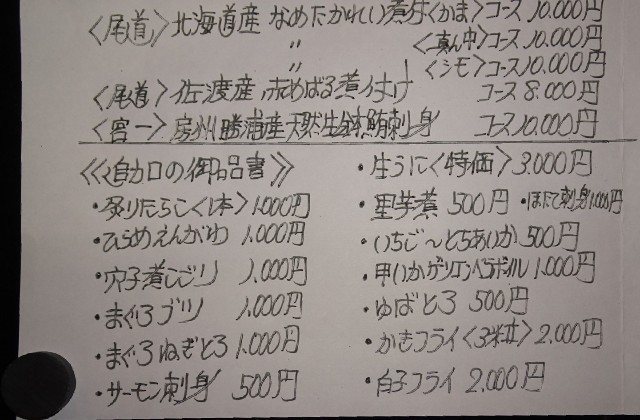 〈尾道〉北海道産 なめたかれい煮付〈かま〉コース 10.000円
〃 〈真ん中〉コース 10.000円
〃 〈シモ〉コース 10.000円
〈尾道〉佐渡産 赤めばる煮付け コース 8.000円
〈宮一〉房州勝浦産天然生鮪刺身 コース 10.000円
《追加の御品書》
・炙りたらこ〈1本〉1.000円
・ひらめえんがわ 1.000円
・穴子煮こごり 1.000円
・まぐろブツ 1.000円
・まぐろねぎとろ 1.000円
・サーモン刺身 500円
・生うに〈特価〉3.000円
・里芋煮 500円 ・ほたて刺身 1.000円
・いちご〜とちあいか 500円
・甲いかゲソエンペラボイル 1.000円
・ゆばとろ 500円
・かきフライ〈3粒〉2.000円
・白子フライ 2.000円